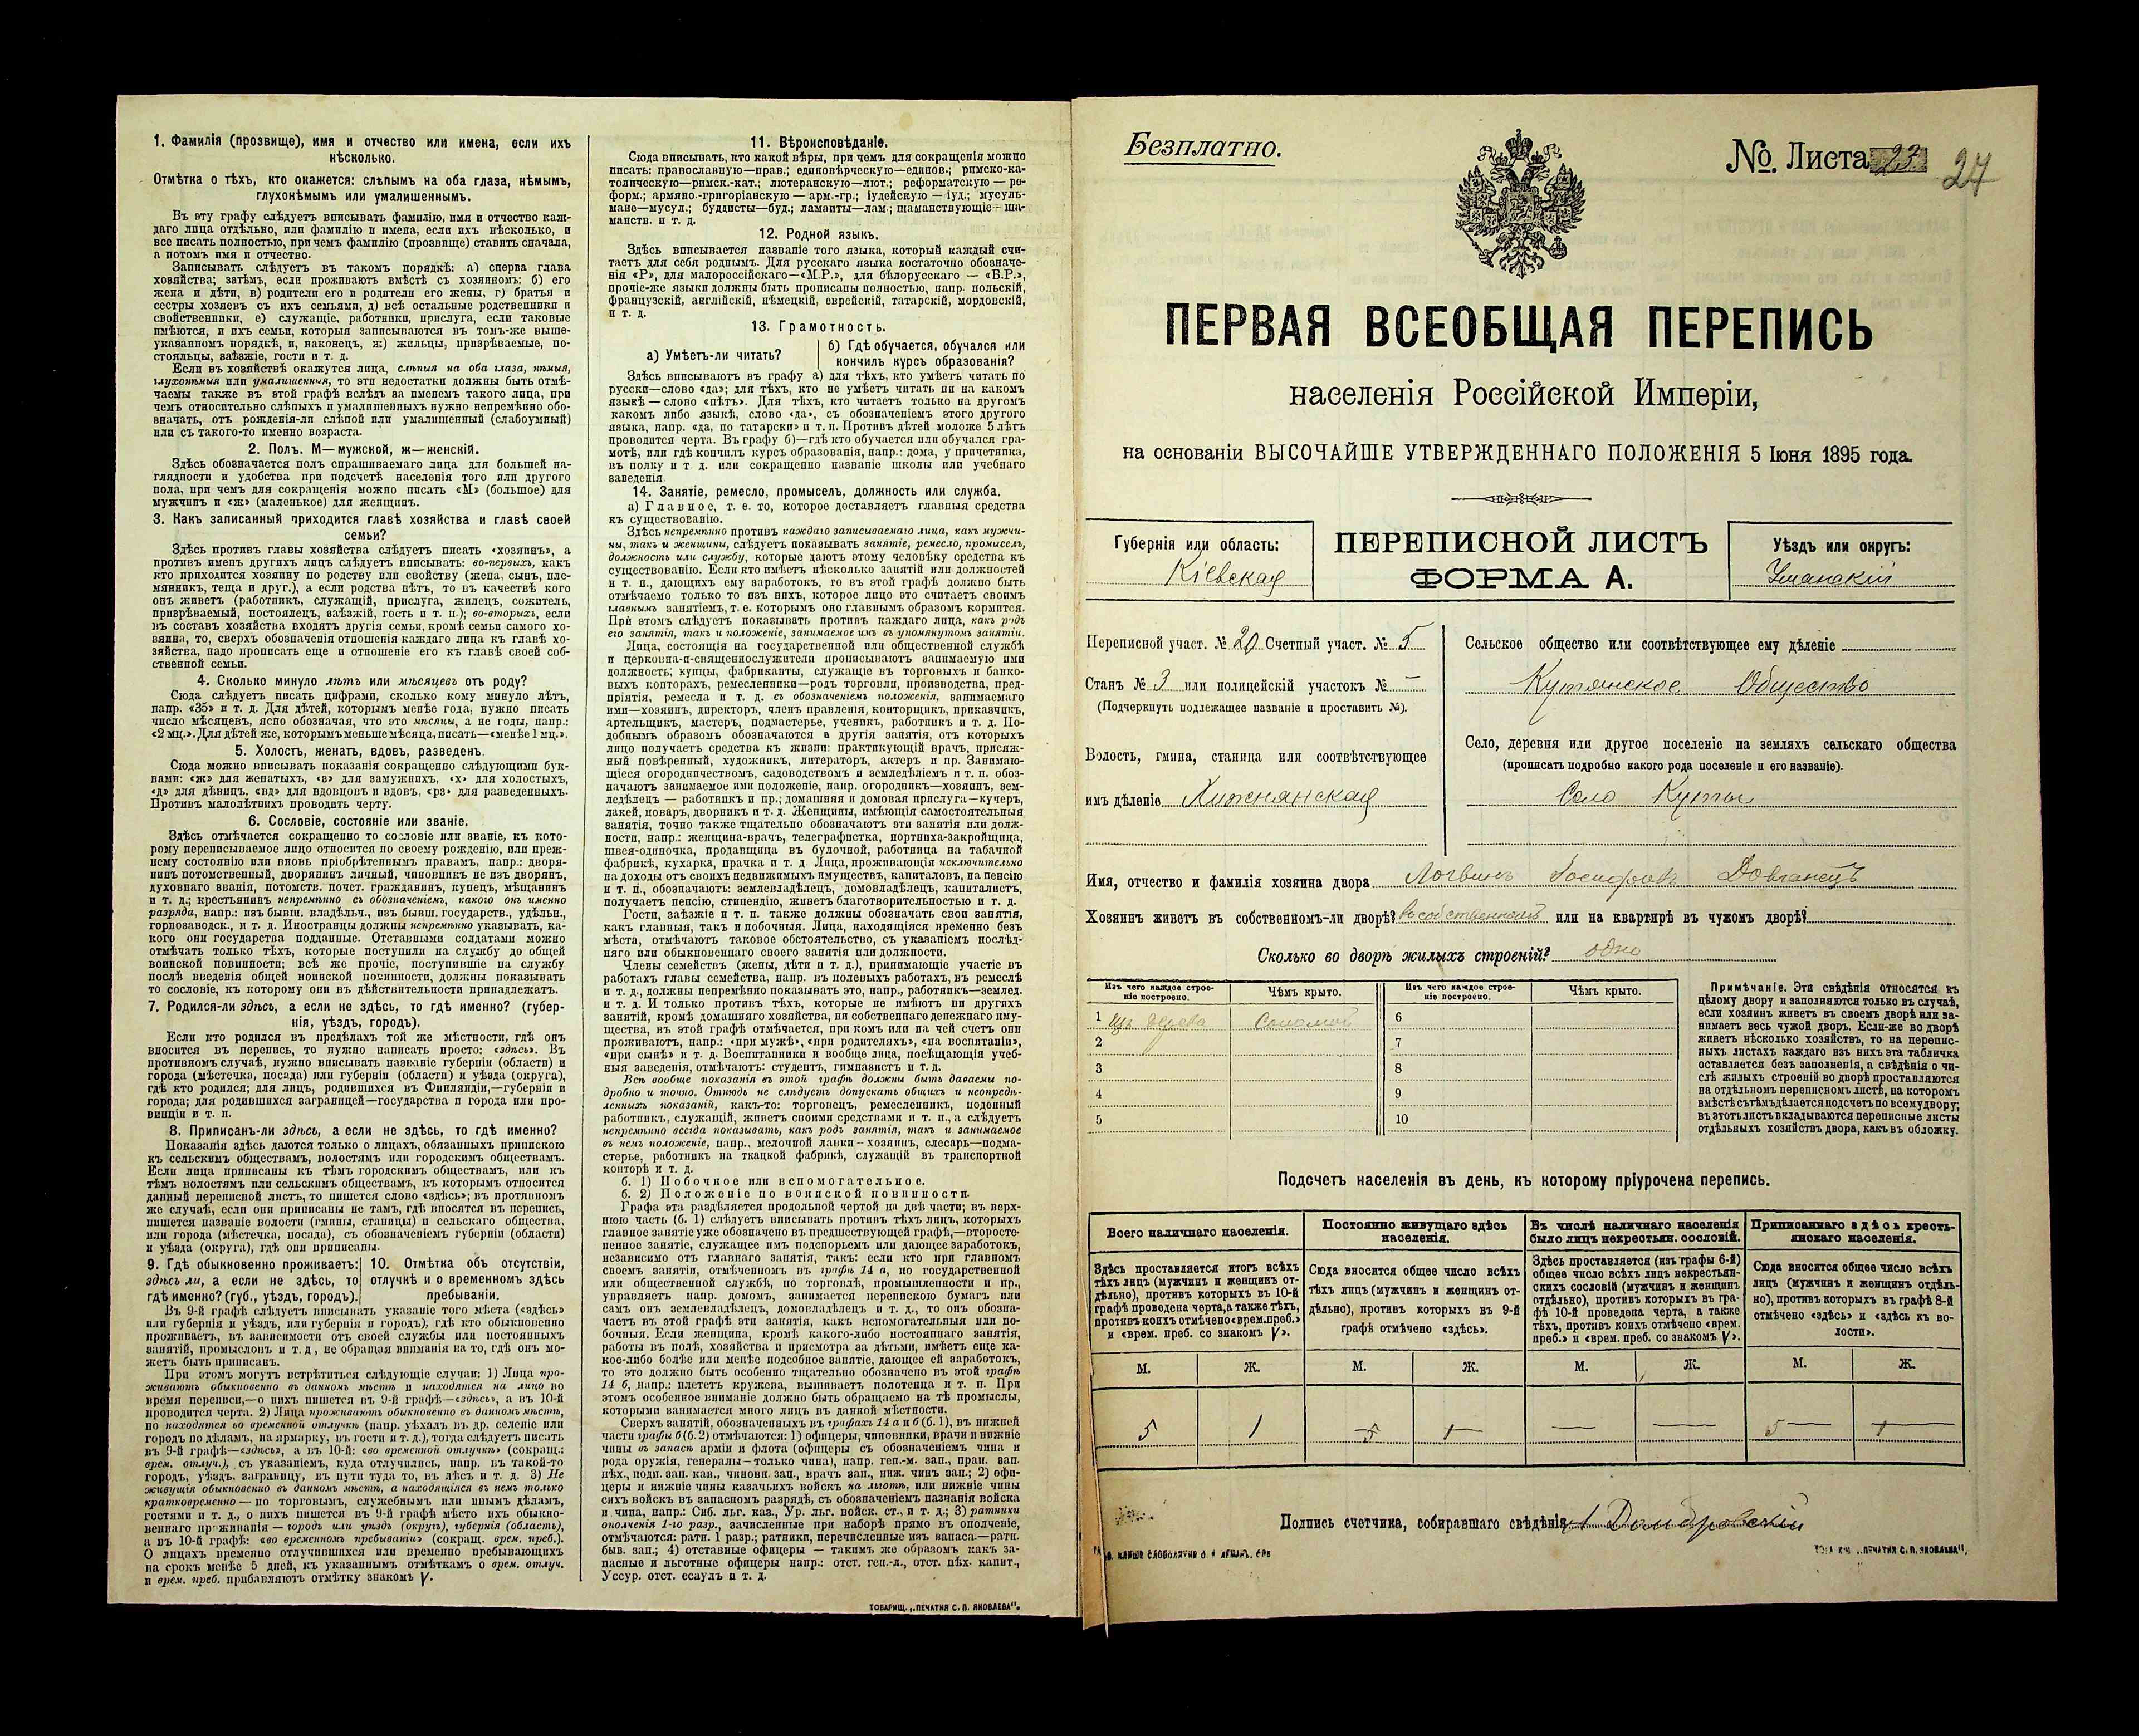 1. Фамилія (прозвище), имя и отчество или имена, если ихъ
нѣсколько.
Отмѣтка о тѣхъ, кто окажется: слѣпымъ на оба глаза, нѣмымъ,
глухонѣмымъ или умалишеннымъ.
Въ эту графу слѣдуетъ вписывать фамилію, имя и отчество каж-
даго лица отдѣльно, или фамилію и имена, если ихъ нѣсколько, и
все писать полностью, при чемъ фамилію (прозвище) ставить сначала,
а потомъ имя и отчество.
Записывать слѣдуетъ въ такомъ порядкѣ: а) сперва глава
хозяйства; затѣмъ, если проживаютъ вмѣстѣ съ хозяиномъ: б) его
жена и дѣти, в) родители его и родители его жены, г) братья и
сестры хозяевъ съ ихъ семьями, д) всѣ остальные родственники и
свойственники, е) служащіе, работники, прислуга, если таковые
имѣются, и ихъ семьи, которыя записываются въ томъ-же выше-
указанномъ порядкѣ, и, наконецъ, ж) жильцы, призрѣваемые, по-
стояльцы, заѣзжіе, гости и т. д.
Если въ хозяйствѣ окажутся лица, слѣпыя на оба глаза, нѣмыя,
глухонѣмыя или умалишенныя, то эти недостатки должны быть отмѣ-
чаемы также въ этой графѣ вслѣдъ за именемъ такого лица, при
чемъ относительно слѣпыхъ и умалишенныхъ нужно непремѣнно обо-
значать, отъ рожденія-ли слѣпой или умалишенный (слабоумный)
или съ такого-то именно возраста.
2. Полъ. М—мужской, ж—женскій.
Здѣсь обозначается полъ спрашиваемаго лица для большей на-
глядности и удобства при подсчетѣ населенія того или другого
пола, при чемъ для сокращенія можно писать «М» (большое) для
мужчинъ и «ж» (маленькое) для женщинъ.
3. Какъ записанный приходится главѣ хозяйства и главѣ своей
семьи?
Здѣсь противъ главы хозяйства слѣдуетъ писать «хозяинъ», а
противъ именъ другихъ лицъ слѣдуетъ вписывать: во-первыхъ, какъ
кто приходится хозяину по родству или свойству (жена, сынъ, пле-
мянникъ, теща и друг.), а если родства нѣтъ, то въ качествѣ кого
онъ живетъ (работникъ, служащій, прислуга, жилецъ, сожитель,
призрѣваемый, постоялецъ, заѣзжій, гость и т. п.); во-вторыхъ, если
въ составъ хозяйства входятъ другія семьи, кромѣ семьи самого хо-
зяина, то, сверхъ обозначенія отношенія каждаго лица къ главѣ хо-
зяйства, надо прописать еще и отношеніе его къ главѣ своей соб-
ственной семьи.
4. Сколько минуло лѣтъ или мѣсяцевъ отъ роду?
Сюда слѣдуетъ писать цифрами, сколько кому минуло лѣтъ,
напр. «35» и т. д. Для дѣтей, которымъ менѣе года, нужно писать
число мѣсяцевъ, ясно обозначая, что это мѣсяцы, а не годы, напр.:
«2 мц.». Для дѣтей же, которымъ меньше мѣсяца, писать—«менѣе 1 мц.».
5. Холостъ, женатъ, вдовъ, разведенъ.
Сюда можно вписывать показанія сокращенно слѣдующими бук-
вами: «ж» для женатыхъ, «з» для замужнихъ, «х» для холостыхъ,
«д» для дѣвицъ, «вд» для вдовцовъ и вдовъ, «рз» для разведенныхъ.
Противъ малолѣтнихъ проводить черту.
6. Сословіе, состояніе или званіе.
Здѣсь отмѣчается сокращенно то сословіе или званіе, къ кото-
рому переписываемое лицо относится по своему рожденію, или преж-
нему состоянію или вновь пріобрѣтеннымъ правамъ, напр.: дворя-
нинъ потомственный, дворянинъ личный, чиновникъ не изъ дворянъ,
духовнаго званія, потомств. почет. гражданинъ, купецъ, мѣщанинъ
и т. д.; крестьянинъ непремѣнно съ обозначеніемъ, какого онъ именно
разряда, напр.: изъ бывш. владѣльч., изъ бывш. государств., удѣльн.,
горнозаводск., и т. д. Иностранцы должны непремѣнно указывать, ка-
кого они государства подданные. Отставными солдатами можно
отмѣчать только тѣхъ, которые поступили на службу до общей
воинской повинности; всѣ же прочіе, поступившіе на службу
послѣ введенія общей воинской повинности, должны показывать
то сословіе, къ которому они въ дѣйствительности принадлежатъ.
7. Родился-ли здѣсь, а если не здѣсь, то гдѣ именно? (губер-
нія, уѣздъ, городъ).
Если кто родился въ предѣлахъ той же мѣстности, гдѣ онъ
вносится въ перепись, то нужно написать просто: «здѣсь». Въ
противномъ случаѣ, нужно вписывать названіе губерніи (области) и
города (мѣстечка, посада) или губерніи (области) и уѣзда (округа),
гдѣ кто родился; для лицъ, родившихся въ Финляндіи,—губерніи и
города; для родившихся заграницей—государства и города или про-
винціи и т. п.
8. Приписанъ-ли здѣсь, а если не здѣсь, то гдѣ именно?
Показанія здѣсь даются только о лицахъ, обязанныхъ припискою
къ сельскимъ обществамъ, волостямъ или городскимъ обществамъ.
Если лица приписаны къ тѣмъ городскимъ обществамъ, или къ
тѣмъ волостямъ или сельскимъ обществамъ, къ которымъ относится
данный переписной листъ, то пишется слово «здѣсь»; въ противномъ
же случаѣ, если они приписаны не тамъ, гдѣ вносятся въ перепись,
пишется названіе волости (гмины, станицы) и сельскаго общества,
или города (мѣстечка, посада), съ обозначеніемъ губерніи (области)
и уѣзда (округа), гдѣ они приписаны.
9. Гдѣ обыкновенно проживаетъ:
здѣсь ли, а если не здѣсь, то
гдѣ именно? (губ., уѣздъ, городъ).
10. Отмѣтка объ отсутствіи,
отлучкѣ и о временномъ здѣсь
пребываніи.
Въ 9-й графѣ слѣдуетъ вписывать указаніе того мѣста («здѣсь»
или губерніи и уѣздъ, или губерніи и городъ), гдѣ кто обыкновенно
проживаетъ, въ зависимости отъ своей службы или постоянныхъ
занятій, промысловъ и т. д, не обращая вниманія на то, гдѣ онъ мо-
жетъ быть приписанъ.
При этомъ могутъ встрѣтиться слѣдующіе случаи: 1) Лица про-
живаютъ обыкновенно въ данномъ мѣстѣ и находятся на лицо во
время переписи,—о нихъ пишется въ 9-й графѣ—«здѣсь», а въ 10-й
проводится черта. 2) Лица проживаютъ обыкновенно въ данномъ мѣстѣ,
но находятся во временной отлучкѣ (напр. уѣхалъ въ др. селеніе или
городъ по дѣламъ, на ярмарку, въ гости и т. д.), тогда слѣдуетъ писать
въ 9-й графѣ—«здѣсь», а въ 10-й: «во временной отлучкѣ» (сокращ.:
врем. отлуч.), съ указаніемъ, куда отлучились, напр. въ такой-то
городъ, уѣздъ, заграницу, въ пути туда то, въ лѣсъ и т. д. 3) Не
живущія обыкновенно въ данномъ мѣстѣ, а находящіяся въ немъ только
кратковременно — по торговымъ, служебнымъ или инымъ дѣламъ,
гостями и т. д., о нихъ пишется въ 9-й графѣ мѣсто ихъ обыкно-
веннаго проживанія — городъ или уѣздъ (округъ), губернія (область),
а въ 10-й графѣ: «во временномъ пребываніи» (сокращ. врем. преб.).
О лицахъ временно отлучившихся или временно пребывающихъ
на срокъ менѣе 5 дней, къ указаннымъ отмѣткамъ о врем. отлуч.
и врем. преб. прибавляютъ отмѣтку знакомъ V.
11. Вѣроисповѣданіе.
Сюда вписывать, кто какой вѣры, при чемъ для сокращенія можно
писать: православную—прав.; единовѣрческую—единов.; римско-ка-
толическую—римск.-кат.; лютеранскую—лют.; реформатскую — ре-
форм.; армяно-григоріанскую — арм.-гр.; іудейскую — іуд.; мусуль-
мане—мусул.; буддисты—буд.; ламаиты—лам.; шаманствующіе—ша-
манств. и т. д.
12. Родной языкъ.
Здѣсь вписывается названіе того языка, который каждый счи-
таетъ для себя роднымъ. Для русскаго языка достаточно обозначе-
нія «Р», для малороссійскаго—«М.Р.», для бѣлорусскаго — «Б.Р.»,
прочіе-же языки должны быть прописаны полностью, напр. польскій,
французскій, англійскій, нѣмецкій, еврейскій, татарскій, мордовскій,
и т. д.
13. Грамотность.
а) Умѣетъ-ли читать?
б) Гдѣ обучается, обучался или
кончилъ курсъ образованія?
Здѣсь вписываютъ въ графу а) для тѣхъ, кто умѣетъ читать по
русски—слово «да»; для тѣхъ, кто не умѣетъ читать ни на какомъ
языкѣ — слово «нѣтъ». Для тѣхъ, кто читаетъ только на другомъ
какомъ либо языкѣ, слово «да», съ обозначеніемъ этого другого
языка, напр. «да, по татарски» и т. п. Противъ дѣтей моложе 5 лѣтъ
проводится черта. Въ графу б)—гдѣ кто обучается или обучался гра-
мотѣ, или гдѣ кончилъ курсъ образованія, напр.: дома, у причетника,
въ полку и т. д. или сокращенно названіе школы или учебнаго
заведенія.
14. Занятіе, ремесло, промыселъ, должность или служба.
а) Главное, т. е. то, которое доставляетъ главныя средства
къ существованію.
Здѣсь непремѣнно противъ каждаго записываемаго лица, какъ мужчи-
ны, такъ и женщины, слѣдуетъ показывать занятіе, ремесло, промыселъ,
должность или службу, которые даютъ этому человѣку средства къ
существованію. Если кто имѣетъ нѣсколько занятій или должностей
и т. п., дающихъ ему заработокъ, то въ этой графѣ должно быть
отмѣчаемо только то изъ нихъ, которое лицо это считаетъ своимъ
главнымъ занятіемъ, т. е. которымъ оно главнымъ образомъ кормится.
При этомъ слѣдуетъ показывать противъ каждаго лица, какъ родъ
его занятія, такъ и положеніе, занимаемое имъ въ упомянутомъ занятіи.
Лица, состоящія на государственной или общественной службѣ
и церковно-и-священнослужители прописываютъ занимаемую ими
должность; купцы, фабриканты, служащіе въ торговыхъ и банко-
выхъ конторахъ, ремесленники—родъ торговли, производства, пред-
пріятія, ремесла и т. д. съ обозначеніемъ положенія, занимаемаго
ими—хозяинъ, директоръ, членъ правленія, конторщикъ, приказчикъ,
артельщикъ, мастеръ, подмастерье, ученикъ, работникъ и т. д. По-
добнымъ образомъ обозначаются и другія занятія, отъ которыхъ
лицо получаетъ средства къ жизни: практикующій врачъ, присяж-
ный повѣренный, художникъ, литераторъ, актеръ и пр. Занимаю-
щіеся огородничествомъ, садоводствомъ и земледѣліемъ и т. п. обоз-
начаютъ занимаемое ими положеніе, напр. огородникъ—хозяинъ, зем-
ледѣлецъ — работникъ и пр.; домашняя и домовая прислуга—кучеръ,
лакей, поваръ, дворникъ и т. д. Женщины, имѣющія самостоятельныя
занятія, точно также тщательно обозначаютъ эти занятія или долж-
ности, напр.: женщина-врачъ, телеграфистка, портниха-закройщица,
швея-одиночка, продавщица въ булочной, работница на табачной
фабрикѣ, кухарка, прачка и т. д Лица, проживающія исключительно
на доходы отъ своихъ недвижимыхъ имуществъ, капиталовъ, на пенсію
и т. п., обозначаютъ: землевладѣлецъ, домовладѣлецъ, капиталистъ,
получаетъ пенсію, стипендію, живетъ благотворительностью и т. д.
Гости, заѣзжіе и т. п. также должны обозначать свои занятія,
какъ главныя, такъ и побочныя. Лица, находящіяся временно безъ
мѣста, отмѣчаютъ таковое обстоятельство, съ указаніемъ послѣд-
няго или обыкновеннаго своего занятія или должности.
Члены семействъ (жены, дѣти и т. д.), принимающіе участіе въ
работахъ главы семейства, напр. въ полевыхъ работахъ, въ ремеслѣ
и т. д., должны непремѣнно показывать это, напр., работникъ—землед.
и т. д. И только противъ тѣхъ, которые не имѣютъ ни другихъ
занятій, кромѣ домашняго хозяйства, ни собственнаго денежнаго иму-
щества, въ этой графѣ отмѣчается, при комъ или на чей счетъ они
проживаютъ, напр.: «при мужѣ», «при родителяхъ», «на воспитаніи»,
«при сынѣ» и т. д. Воспитанники и вообще лица, посѣщающія учеб-
ныя заведенія, отмѣчаютъ: студентъ, гимназистъ и т. д.
Всѣ вообще показанія въ этой графѣ должны быть даваемы по-
дробно и точно. Отнюдь не слѣдуетъ допускать общихъ и неопредѣ-
ленныхъ показаній, какъ-то: торговецъ, ремесленникъ, поденный
работникъ, служащій, живетъ своими средствами и т. п., а слѣдуетъ
непремѣнно всегда показывать, какъ родъ занятія, такъ и занимаемое
въ немъ положеніе, напр., мелочной лавки—хозяинъ, слесарь—подма-
стерье, работникъ на ткацкой фабрикѣ, служащій въ транспортной
конторѣ и т. д.
б. 1) Побочное или вспомогательное.
б. 2) Положеніе по воинской повинности.
Графа эта раздѣляется продольной чертой на двѣ части; въ верх-
нюю часть (б. 1) слѣдуетъ вписывать противъ тѣхъ лицъ, которыхъ
главное занятіе уже обозначено въ предшествующей графѣ,—второсте-
пенное занятіе, служащее имъ подспорьемъ или дающее заработокъ,
независимо отъ главнаго занятія, такъ: если кто при главномъ
своемъ занятіи, отмѣченномъ въ графѣ 14 а, по государственной
или общественной службѣ, по торговлѣ, промышленности и пр.,
управляетъ напр. домомъ, занимается перепискою бумагъ или
самъ онъ землевладѣлецъ, домовладѣлецъ и т. д., то онъ обозна-
чаетъ въ этой графѣ эти занятія, какъ вспомогательныя или по-
бочныя. Если женщина, кромѣ какого-либо постояннаго занятія,
работы въ полѣ, хозяйства и присмотра за дѣтьми, имѣетъ еще ка-
кое-либо болѣе или менѣе подсобное занятіе, дающее ей заработокъ,
то это должно быть особенно тщательно обозначено въ этой графѣ
14 б, напр.: плететъ кружева, вышиваетъ полотенца и т. п. При
этомъ особенное вниманіе должно быть обращаемо на тѣ промыслы,
которыми занимается много лицъ въ данной мѣстности.
Сверхъ занятій, обозначенныхъ въ графахъ 14 а и б (б. 1), въ нижней
части графы б (б. 2) отмѣчаются: 1) офицеры, чиновники, врачи и нижніе
чины въ запасѣ арміи и флота (офицеры съ обозначеніемъ чина и
рода оружія, генералы—только чина), напр. ген.-м. зап., прап. зап.
пѣх., подп. зап. кав., чиновн. зап., врачъ зап., ниж. чинъ зап.; 2) офи-
церы и нижніе чины казачьихъ войскъ на льготѣ, или нижніе чины
сихъ войскъ въ запасномъ разрядѣ, съ обозначеніемъ названія войска
и чина, напр.: Сиб. льг. каз., Ур. льг. войск. ст., и т. д.; 3) ратники
ополченія 1-го разр., зачисленные при наборѣ прямо въ ополченіе,
отмѣчаются: ратн. 1 разр.; ратники, перечисленные изъ запаса.—ратн.
быв. зап.; 4) отставные офицеры — такимъ же образомъ какъ за-
пасные и льготные офицеры напр.: отст. ген.-л., отст. пѣх. капит.,
Уссур. отст. есаулъ и т. д.
ТОВАРИЩ. „ПЕЧАТНЯ С. П. ЯКОВЛЕВА".
Безплатно.
№. Листа 23
27
ПЕРВАЯ ВСЕОБЩАЯ ПЕРЕПИСЬ
населенія Россійской Имперіи,
на основаніи ВЫСОЧАЙШЕ УТВЕРЖДЕННАГО ПОЛОЖЕНІЯ 5 Іюня 1895 года.
Губернія или область:
Кіевская
ПЕРЕПИСНОЙ ЛИСТЪ
ФОРМА А.
Уѣздъ или округъ:
Уманскій
Переписной участ. № 20 Счетный участ. № 5
Станъ № 3 или полицейскій участокъ № —
(Подчеркнуть подлежащее названіе и проставить №).
Волость, гмина, станица или соотвѣтствующее
имъ дѣленіе Хижнянская
Сельское общество или соотвѣтствующее ему дѣленіе
Кутянское Общество
Село, деревня или другое поселеніе на земляхъ сельскаго общества
(прописать подробно какого рода поселеніе и его названіе).
Село Куты
Имя, отчество и фамилія хозяина двора Логвинъ Іосифовъ Довганецъ
Хозяинъ живетъ въ собственномъ-ли дворѣ? въ собственномъ или на квартирѣ въ чужомъ дворѣ?
Сколько во дворѣ жилыхъ строеній? одно
Изъ чего каждое строе-
ніе построено.
Чѣмъ крыто.
Изъ чего каждое строе-
ніе построено.
Чѣмъ крыто.
1 Изъ дерева Соломой 6
2 7
3 8
4 9
5 10
Примѣчаніе. Эти свѣдѣнія относятся къ
цѣлому двору и заполняются только въ случаѣ,
если хозяинъ живетъ въ своемъ дворѣ или за-
нимаетъ весь чужой дворъ. Если-же во дворѣ
живетъ нѣсколько хозяйствъ, то на перепис-
ныхъ листахъ каждаго изъ нихъ эта табличка
оставляется безъ заполненія, а свѣдѣнія о чи-
слѣ жилыхъ строеній во дворѣ проставляются
на отдѣльномъ переписномъ листѣ, на которомъ
вмѣстѣ съ тѣмъ дѣлается подсчетъ по всему двору;
въ этотъ листъ вкладываются переписные листы
отдѣльныхъ хозяйствъ двора, какъ въ обложку.
Подсчетъ населенія въ день, къ которому пріурочена перепись.
Всего наличнаго населенія.
Здѣсь проставляется итогъ всѣхъ
тѣхъ лицъ (мужчинъ и женщинъ от-
дѣльно), противъ которыхъ въ 10-й
графѣ проведена черта, а также тѣхъ,
противъ коихъ отмѣчено «врем. преб.»
и «врем. преб. со знакомъ V».
Постоянно живущаго здѣсь
населенія.
Сюда вносится общее число всѣхъ
тѣхъ лицъ (мужчинъ и женщинъ от-
дѣльно), противъ которыхъ въ 9-й
графѣ отмѣчено «здѣсь».
Въ числѣ наличнаго населенія
было лицъ некрестьян. сословій.
Здѣсь проставляется (изъ графы 6-й)
общее число всѣхъ лицъ некрестьян-
скихъ сословій (мужчинъ и женщинъ
отдѣльно), противъ которыхъ въ гра-
фѣ 10-й проведена черта, а также
тѣхъ, противъ коихъ отмѣчено «врем.
преб.» и «врем. преб. со знакомъ V».
Приписаннаго здѣсь кресть-
янскаго населенія.
Сюда вносится общее число всѣхъ
лицъ (мужчинъ и женщинъ отдѣль-
но), противъ которыхъ въ графѣ 8-й
отмѣчено «здѣсь» и «здѣсь къ во-
лости».
М. Ж. М. Ж. М. Ж. М. Ж.
5 1 5 1 — — 5 1
Подпись счетчика, собиравшаго свѣдѣнія Домбровскій
Т-ВА „ПЕЧАТНЯ С. П. ЯКОВЛЕВА",